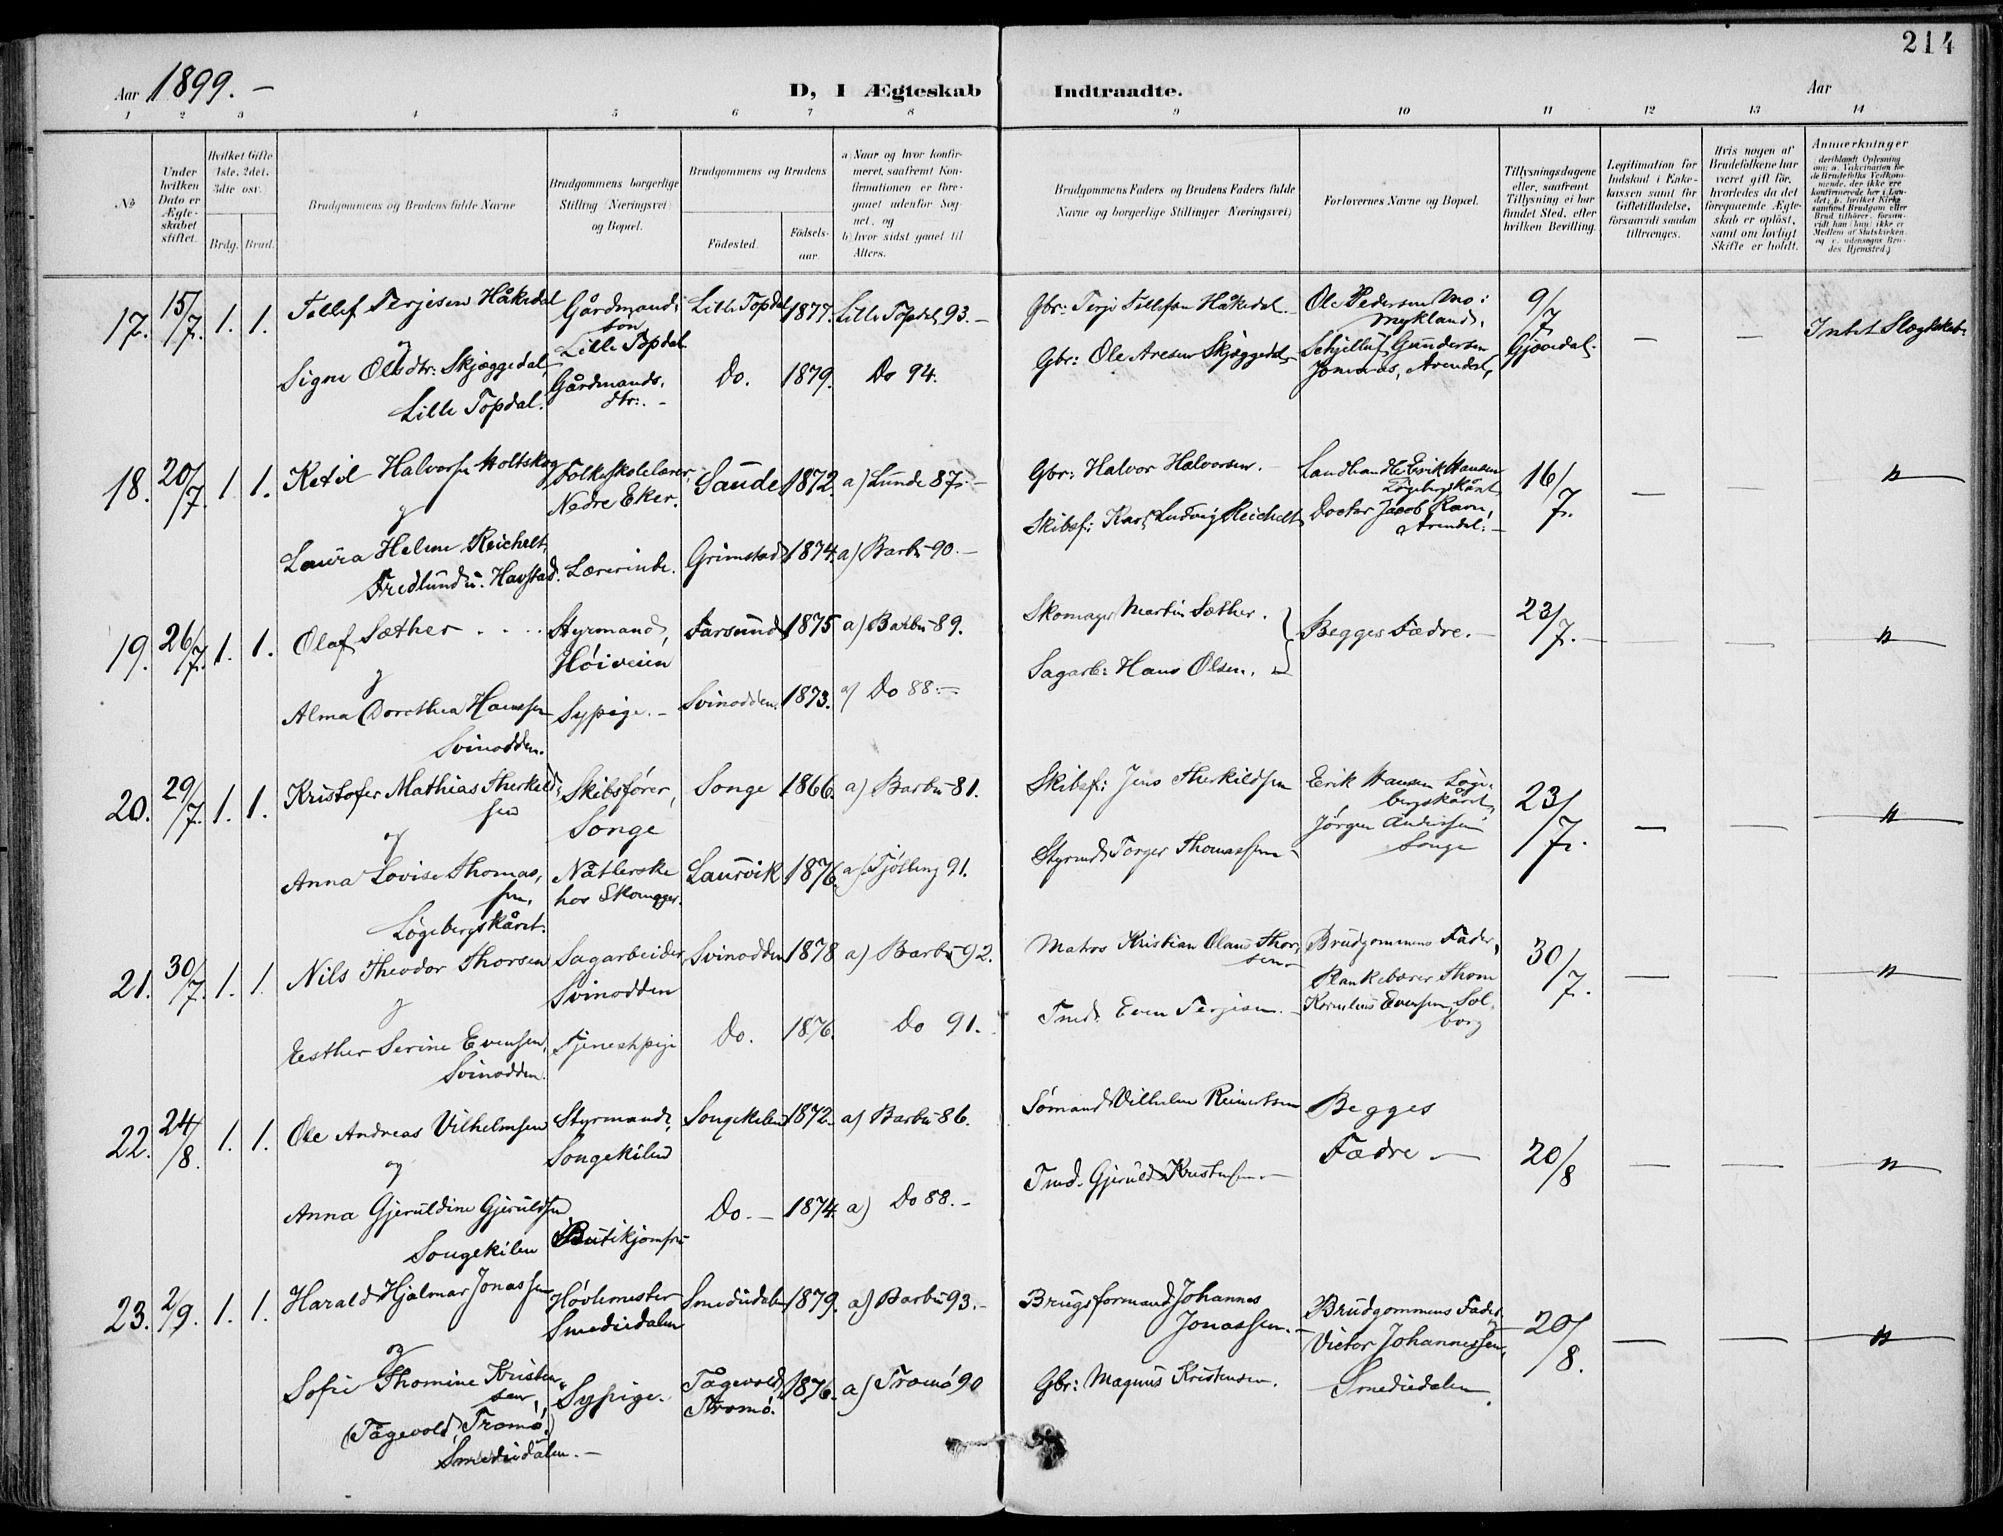 214
Aar 1899. –
D, I Ægteskab Indtraadte.
Aar
1 2 3 4 5 6 7 8 9 10 11 12 13 14
№
Under hvilken Dato er Ægteskabet stiftet.
Hvilket Gifte 1ste, 2det, 3die osv.
Brdg. Brud.
Brudgommens og Brudens fulde Navne
Brudgommens borgerlige Stilling (Næringsvei) og Bopæl.
Brudgommens og Brudens
Fødested.
Fødselsaar.
a) Naar og hvor konfirmeret, saafremt Konfirmationen er foregaaet udenfor Sognet, og
b) hvor sidst gaaet til Alters.
Brudgommens Faders og Brudens Faders fulde Navne og borgerlige Stillinger (Næringsvei)
Forlovernes Navne og Bopæl.
Tillysningsdagene eller, saafremt Tillysning ei har fundet Sted, efter hvilken Bevilling.
Legitimation for Indskud i Enkekassen samt for Giftetilladelse, forsaavidt saadan tiltrænges.
Hvis nogen af Brudefolkene har været gift før, hvorledes da det foregaaende Ægteskab er opløst, samt om lovligt Skifte er holdt.
Anmærkninger
17. 15/7. 1. 1. Tellef Terjesen Håkedal Gårdmands søn, Lille Topdal Lille Topdal 1877. Lille Topdal, 93. – Gbr: Terje Tellefsen Håkedal. – Ole Pedersen Mo: Mykland, 9/7 Gjøvedal. – – Intet Slægtskab.
og
Signe Olsdtr: Skjæggedal, Lille Topdal. Gårdmands dtr: – Do. 1879. Do 94. Gbr: Ole Aresen Skjæggedal – Schjelluf Gundersen Jomaas, Arendal,
18. 20/7. 1. 1. Ketil Halvorsen Holtskog Folkeskolelærer, Nedre Eker. Saude 1872. a) Lunde 87. – Gbr: Halvor Halvorsen. – Landhandle Erik Hansen Løgebergskåret 16/7. – – "
og
Laura Helene Reichelt, Fredlund u. Havstad. Lærerinde. Grimstad 1874. a) Barbu 90. – Skibsf: Karl Ludvig Reichelt, Doctor Jacob Ravn, Arendal. –
19. 26/7. 1. 1. Olaf Sæther . . . . Styrmand, Høiveien Farsund 1875 a) Barbu 89. Skomager Martin Sæther. Begges Fædre. – 23/7. – – – "
og
Alma Dorothea Hanssen Svinodden. Sypige. – Svinodden. 1873. a) Do 88. – Sagarb: Hans Olsen. –
20. 29/7. 1. 1. Kristofer Mathias Therkildsen Skibsfører, Songe Songe 1866. a) Barbu 81. Skibsf: Jens Therkildsen Erik Hansen Løgebergskåret, 23/7. – – "
og
Anna Lovise Thomassen, Løgebergskåret. Nåtlerske hos Skomager. Laurvik 1876. a) Tjølling 91. Styrmd. Torger Thomassen – Jørgen Andersen Songe
21. 30/7. 1. 1. Nils Theodor Thorsen Sagarbeider, Svinodden Svinodden 1878 a) Barbu 92. Matros Kristian Olaus Thorsen – Brudgommens Fader, 30/7. – – "
og
Esther Serine Evensen, Svinodden. Tjenestpige Do. 1876. Do 91. Tmd. Even Terjesen. – Plankebærer Thom Kornelius Evensen, Solborg
22. 24/8. 1. 1. Ole Andreas Vilhelmsen Styrmand, Songekilen Songekilen 1872. a) Barbu 86. Sømand Vilhelm Reinertsen Begges Fædre – 20/8 – – "
og
Anna Gjeruldine Gjeruldsen Songekilen Butikjomfru Do. – 1874. a) Do 88. – Tmd. Gjeruld Kristensen. –
23. 2/9. 1. 1. Harald Hjalmar Jonassen Høvlemester Smededalen Smededalen 1879. a) Barbu 93. – Brugsformand Johannes Jonassen. – Brudgommens Fader 20/8. – – "
og
Sofie Thomine Kristensen, (Tågevold, Tromø.) Smededalen. – Sypige. Tågevold, Tromø. 1876. a) Tromø 90 Gbr: Magnus Kristensen. Victor Johannessen, Smededalen.